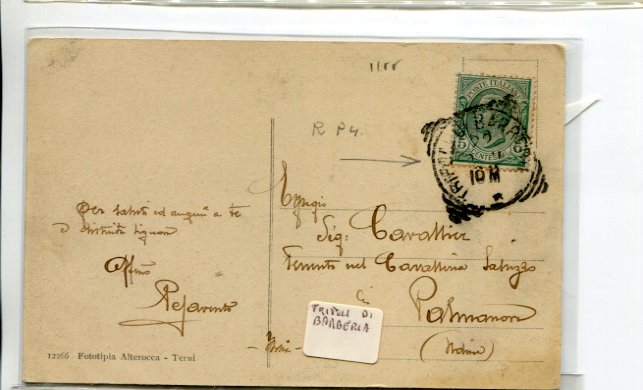 1155
R P4.
POSTE ITALIANE
5 5
CENTESIMI
TRIPOLI DI BARBERIA
10 M
Per saluti ed auguri a te
e distinta Signora
Affmo
Egregio
Sig. Cavallier
Tenente nel Cavalleria Saluzzo
in
Palmanova
(Udine)
TRIPOLI DI
BARBERIA
12266 Fototipia Alterocca - Terni